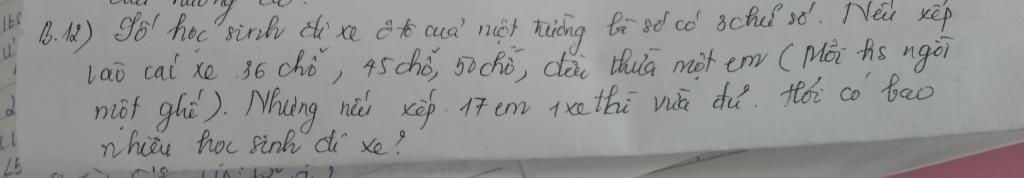 B.12) Số học sinh đi xe ô tô của một trường là số có 3 chữ số. Nếu xếp
vào cái xe 36 chỗ, 45 chỗ, 50 chỗ, đều thừa một em (Mỗi hs ngồi
một ghế). Nhưng nếu xếp 17 em 1 xe thì vừa đủ. Hỏi có bao
nhiêu học sinh đi xe?